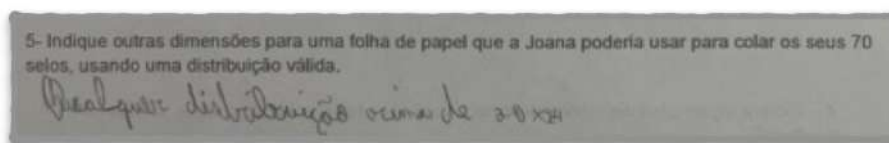 5- Indique outras dimensões para uma folha de papel que a Joana poderia usar para colar os seus 70
selos, usando uma distribuição válida.
Qualquer distribuição acima de